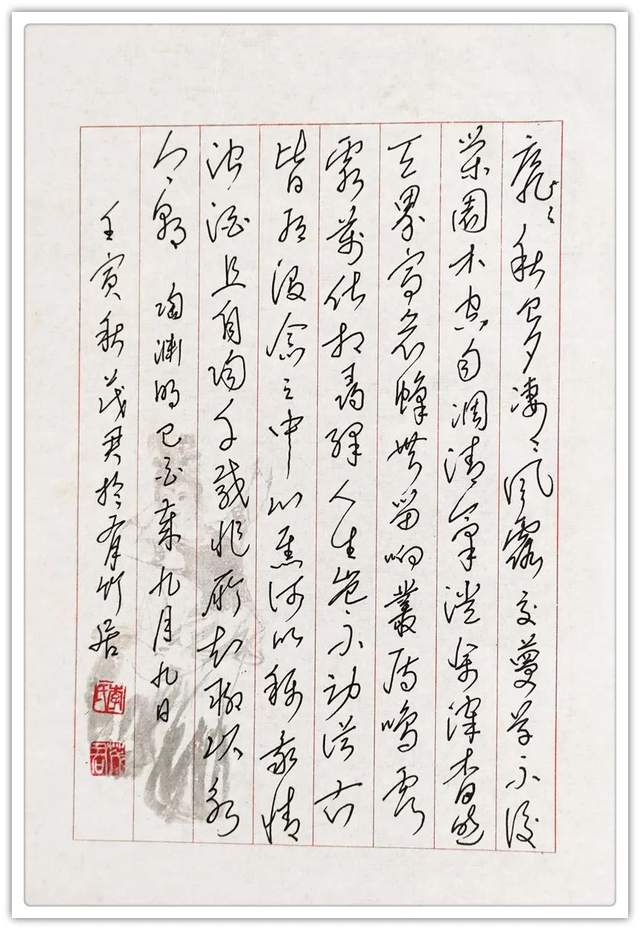 靡靡秋已夕淒淒風露交蔓草不復
榮園木空自凋清氣澄餘滓杳然
天界高哀蟬無留響叢雁鳴雲
霄萬化相尋繹人生豈不勞從古
皆有沒念之中心焦何以稱我情
濁酒且自陶千載非所知聊以永
今朝 陶淵明己酉歲九月九日
壬寅秋茂君於有竹居
李氏
茂君